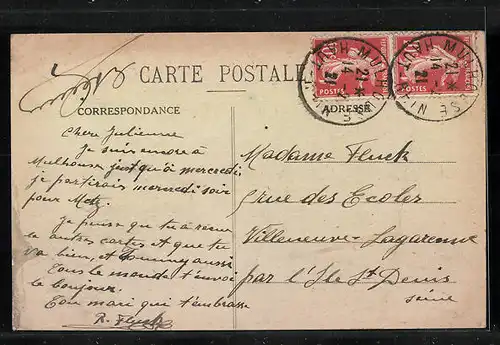 CARTE POSTALE
CORRESPONDANCE
ADRESSE
Chere Julienne
Je suis encore à
Mulhouse jusqu'à mercredi
je partirais mercredi soir
pour Metz.
Je pense que tu à reçue
le autres cartes et que tu
va bien, et aussi
Tous le monde t'envoi
le bonjour.
Ton mari qui t'embrasse
R. Fluck
Madame Fluck
rue des Ecoles
Villeneuve-Lagarenne
par l'Ile St Denis
Seine
POSTES
21
14
21
POSTES
21
14
21